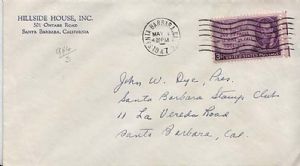 HILLSIDE HOUSE, INC.
521 ONTARE ROAD
SANTA BARBARA, CALIFORNIA
SANTA BARBARA
MAY
PM
1947
3¢
John W. Dye, Pres.
Santa Barbara Stamp Club
11 La Vereda Road
Santa Barbara, Cal.